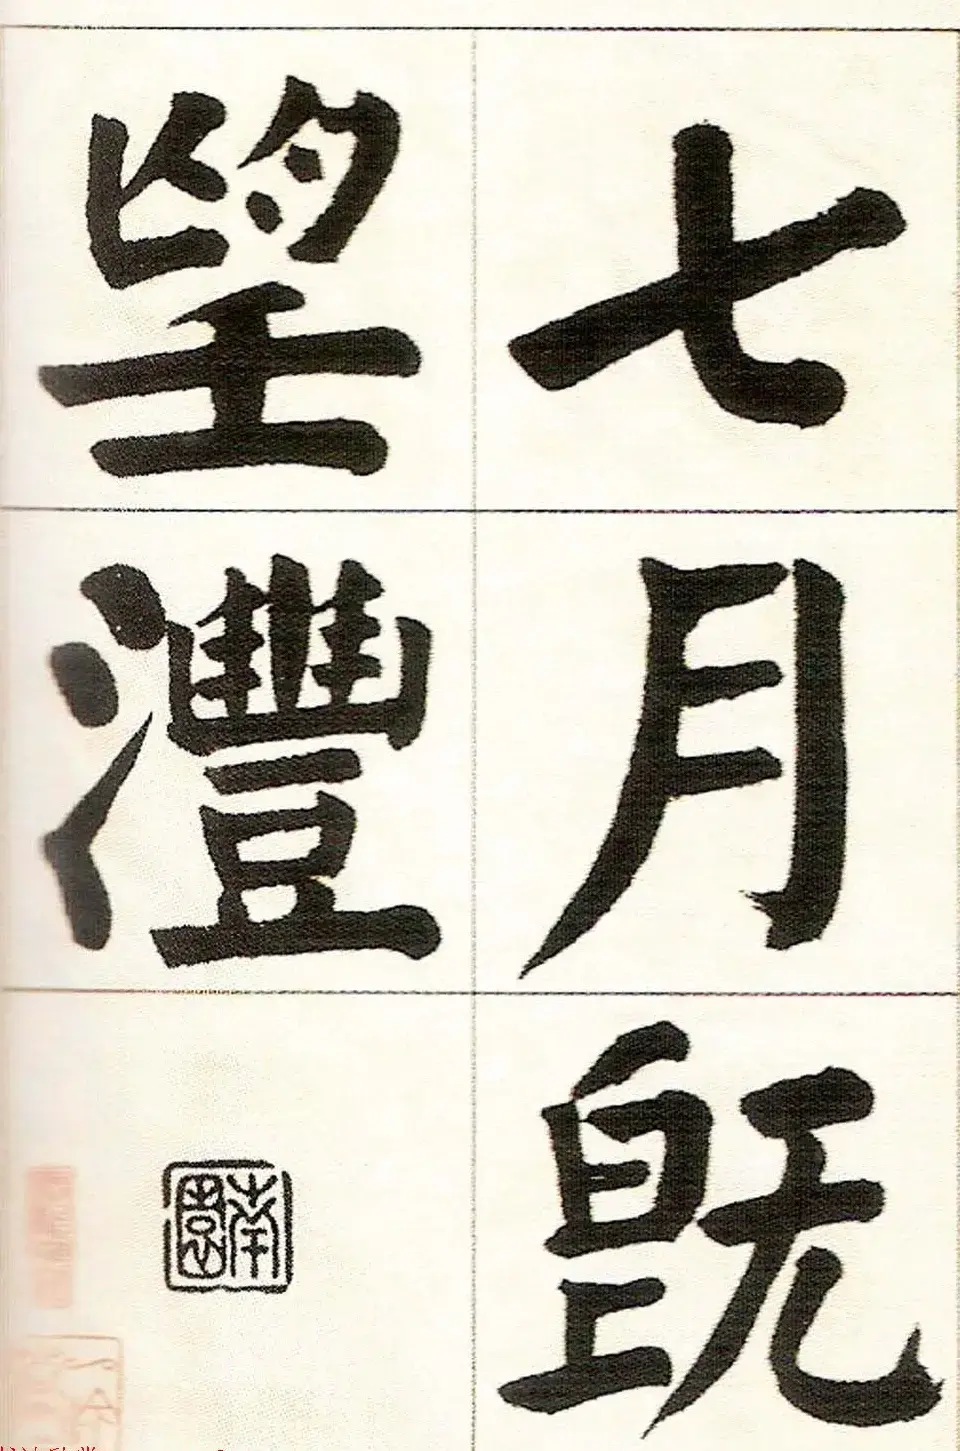 七月既
望灃